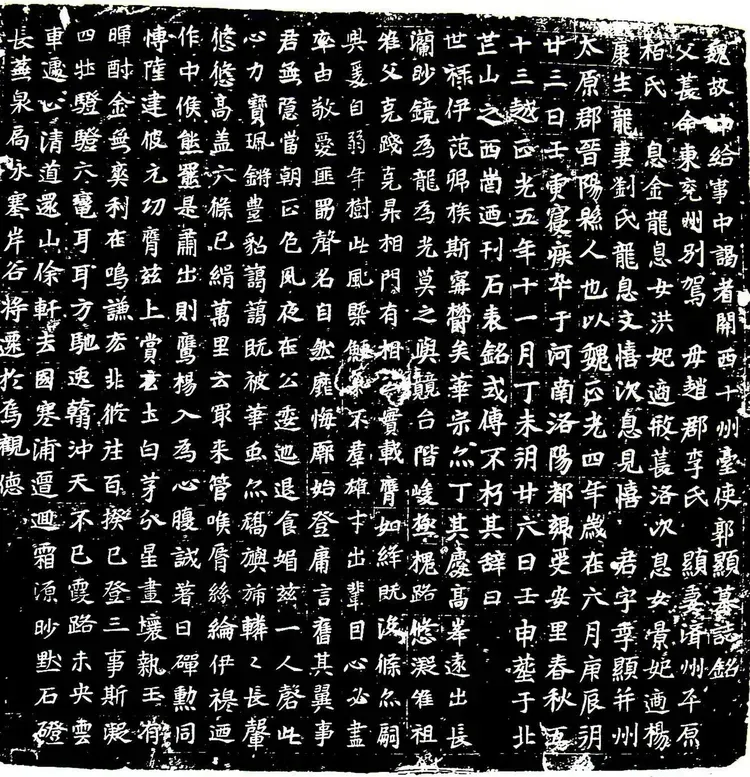 魏故中給事中謁者關西十州臺使郭顯墓誌銘
父萇命東兗州別駕 母趙郡李氏 顯妻濟州平原
柏氏 息金龍息女洪妃適殷萇洛次息女景妃適楊
康生龍妻劉氏龍息文憘次息見憘 君字季顯并州
太原郡晉陽縣人也以魏正光四年歲在六月庚辰朔
廿三日壬寅寑疾卒于河南洛陽都鄉受安里春秋五
十三越正光五年十一月丁未朔廿六日壬申塟于北
芒山之西崗迺刊石裁銘式傳不朽其辞曰
世祿伊范歸族斯甯欝矣華宗亦丁其慶高峯遠出長
瀾眇鏡為龍為光莫之與競台階峻極槐路悠凝惟祖
惟父克踐克昇相門有相實載膺如絳旣條亦嗣
興爰自弱年樹此風槩不羣雄才出輩曰心必盡
率由敬愛匪勗聲名自然靡悔厥始登庸言奮其翼事
君無隱當朝正色夙夜在公委迆退食媚兹一人罄此
心力寶珮鏘豊貂藹藹旣被華虫亦旟旆轔〻長轂
悠悠高盖六條已緝萬里云眾來管喉脣絲綸伊褫迺
作中候能羆是肅出則鷹楊入為心腹誠著日磾勳同
博陸建彼元功膺兹上賞玄土白茅分星畫壤執玉
暉酎金無爽利在鳴謙志非徃百揆已登三事斯凝
四牡騤騤六轡耳耳方馳逸翰沖天不已霞路未央雲
車遽止清道還山俻軒去國寒浦邅迴霜源眇默石磴
長蕪泉扃永塞岸谷將遷於焉觀德